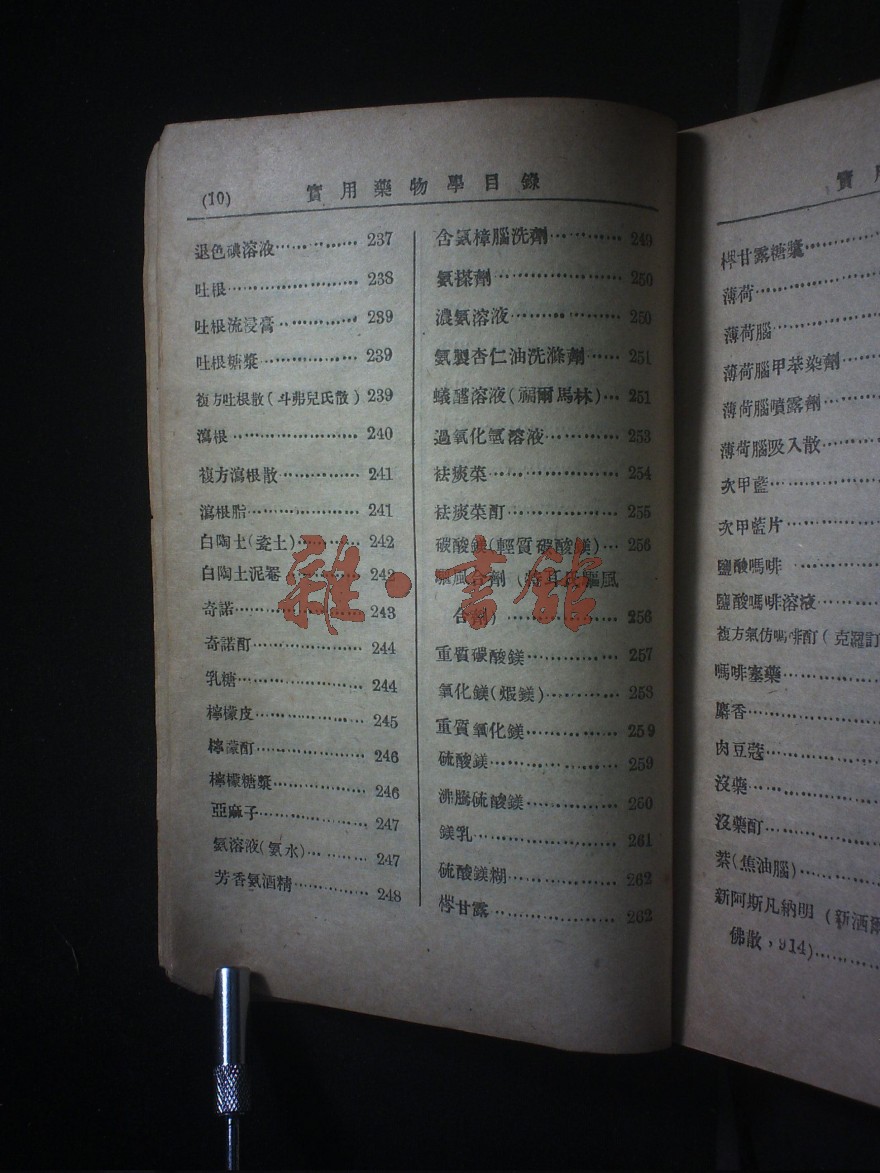 (10) 實用藥物學目錄
退色碘溶液 237
吐根 238
吐根流浸膏 239
吐根糖漿 239
複方吐根散(斗弗兒氏散) 239
瀉根 240
複方瀉根散 241
瀉根脂 241
白陶土(瓷土) 242
白陶土泥罨 242
奇諾 243
奇諾酊 244
乳糖 244
檸檬皮 245
檸檬酊 246
檸檬糖漿 246
亞麻子 247
氨溶液(氨水) 247
芳香氨酒精 248
含氨樟腦洗劑 249
氨搽劑 250
濃氨溶液 250
氨製杏仁油洗滌劑 251
蟻醛溶液(福爾馬林) 251
過氧化氫溶液 253
祛痰菜 254
祛痰菜酊 255
碳酸鎂(輕質碳酸鎂) 256
驅風合劑(特耳氏驅風
合劑) 256
重質碳酸鎂 257
氧化鎂(煆鎂) 253
重質氧化鎂 259
硫酸鎂 259
沸騰硫酸鎂 260
鎂乳 261
硫酸鎂糊 262
梣甘露 262
實用
梣甘露糖漿
薄荷
薄荷腦
薄荷腦甲苯染劑
薄荷腦噴霧劑
薄荷腦吸入散
次甲藍
次甲藍片
鹽酸嗎啡
鹽酸嗎啡溶液
複方氣仿嗎啡酊(克羅訂
嗎啡塞藥
麝香
肉豆蔻
沒藥
沒藥酊
萘(焦油腦)
新阿斯凡納明(新洒爾
佛散,914)
雜·書館